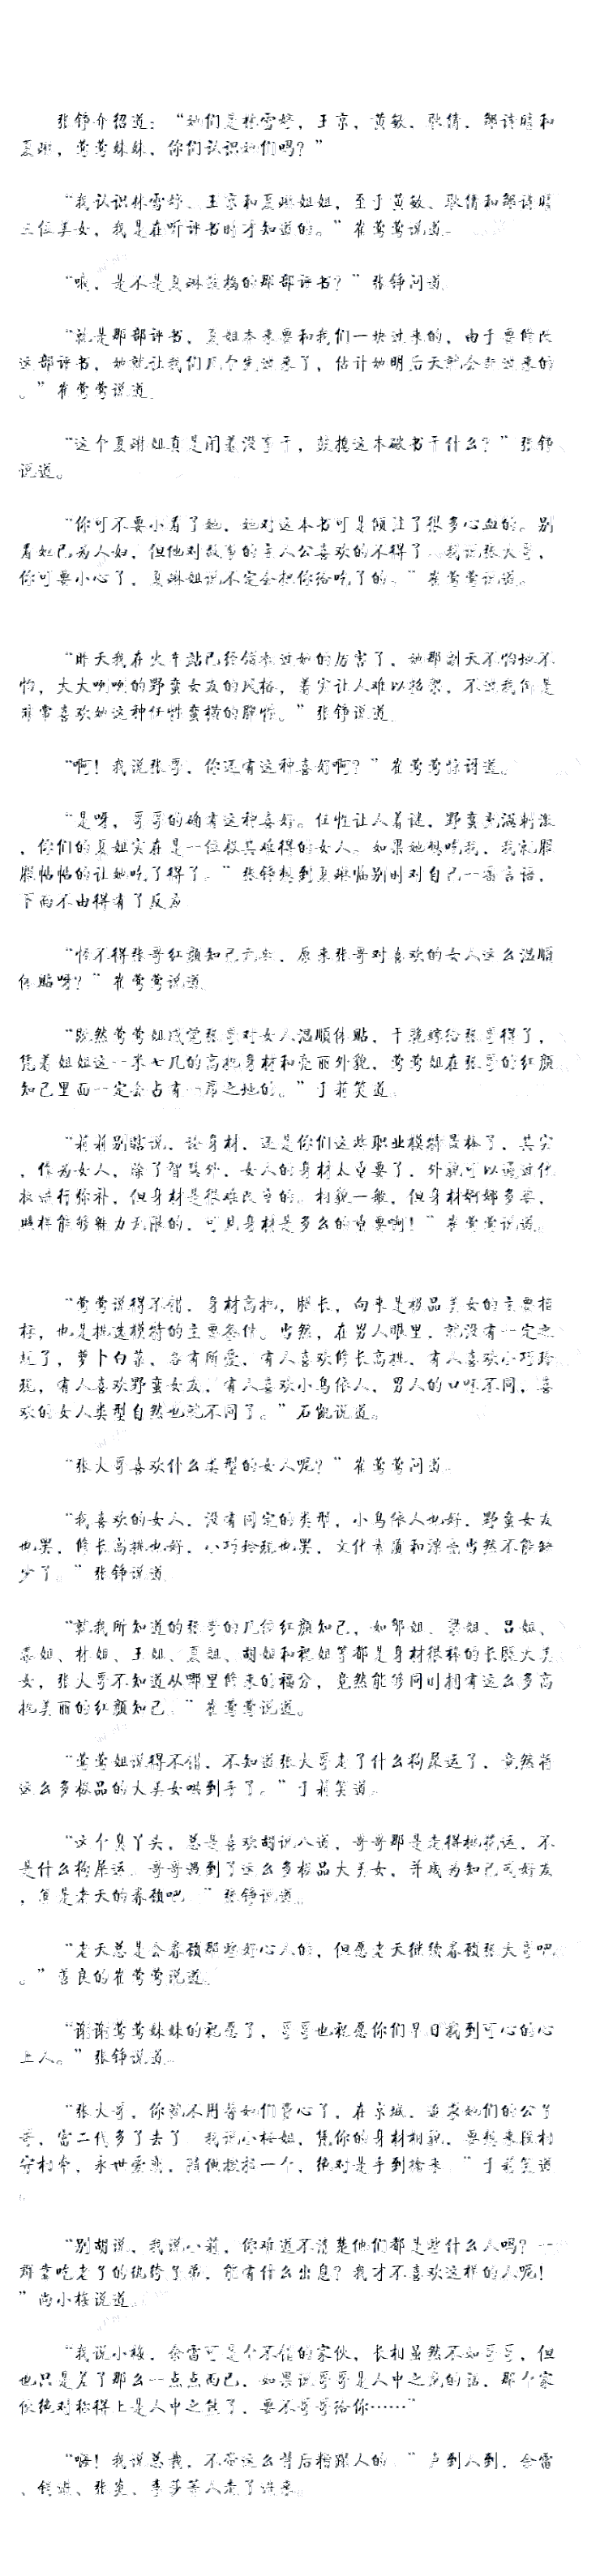 张铮介绍道：“她们是林雪婷，王京，黄敏、耿倩、邹诗晴和
夏琳，莺莺妹妹，你们认识她们吗？”
“我认识林雪婷、王京和夏琳姐姐，至于黄敏、耿倩和邹诗晴
三位美女，我是在听评书时才知道的。”崔莺莺说道。
“哦，是不是夏琳鼓捣的那部评书？”张铮问道。
“就是那部评书，夏姐本来要和我们一块过来的，由于要修改
这部评书，她就让我们几个先过来了，估计她明后天就会赶过来的
。”崔莺莺说道。
“这个夏琳姐真是闲着没事干，鼓捣这本破书干什么？”张铮
说道。
“你可不要小看了她，她对这本书可是倾注了很多心血的。别
看她已为人妇，但他对故事的主人公喜欢的不得了。我说张大哥，
你可要小心了，夏琳姐说不定会把你给吃了的。”崔莺莺说道。
“昨天我在火车站已经领教过她的厉害了，她那副天不怕地不
怕，大大咧咧的野蛮女友的风格，着实让人难以招架，不过我倒是
非常喜欢她这种任性蛮横的脾性。”张铮说道。
“啊！我说张哥，你还有这种喜好啊？”崔莺莺惊讶道。
“是呀，哥哥的确有这种喜好。任性让人着谜，野蛮充满刺激
，你们的夏姐实在是一位极其难得的女人。如果她想吃我，我就服
服帖帖的让她吃了得了。”张铮想到夏琳临别时对自己一番言语，
下面不由得有了反应。
“怪不得张哥红颜知己无数，原来张哥对喜欢的女人这么温顺
体贴呀？”崔莺莺说道。
“既然莺莺姐感觉张哥对女人温顺体贴，干脆嫁给张哥得了，
凭着姐姐这一米七几的高挑身材和亮丽外貌，莺莺姐在张哥的红颜
知己里面一定会占有一席之地的。”于莉笑道。
“莉莉别瞎说，论身材，还是你们这些职业模特最棒了，其实
，作为女人，除了智慧外，女人的身材太重要了，外貌可以通过化
妆进行弥补，但身材是很难改变的。相貌一般，但身材婀娜多姿，
照样能够魅力无限的，可见身材是多么的重要啊！”崔莺莺说道。
“莺莺说得不错，身材高挑，腿长，向来是极品美女的主要指
标，也是挑选模特的主要条件。当然，在男人眼里，就没有一定之
规了，萝卜白菜，各有所爱，有人喜欢修长高挑，有人喜欢小巧玲
珑，有人喜欢野蛮女友，有人喜欢小鸟依人，男人的口味不同，喜
欢的女人类型自然也就不同了。”石凯说道。
“张大哥喜欢什么类型的女人呢？”崔莺莺问道。
“我喜欢的女人，没有固定的类型，小鸟依人也好，野蛮女友
也罢，修长高挑也好，小巧玲珑也罢，文化素质和漂亮当然不能缺
少了。”张铮说道。
“就我所知道的张哥的几位红颜知己，如邹姐、梁姐、吕姐、
秦姐、林姐、王姐、夏姐、胡姐和祝姐等都是身材很棒的长腿大美
女，张大哥不知道从哪里修来的福分，竟然能够同时拥有这么多高
挑美丽的红颜知己。”崔莺莺说道。
“莺莺姐说得不错，不知道张大哥走了什么狗屎运了，竟然将
这么多极品的大美女哄到手了。”于莉笑道。
“这个臭丫头，总是喜欢胡说八道，哥哥那是走得桃花运，不
是什么狗屎运。哥哥遇到了这么多极品大美女，并成为知己可好友
，算是老天的眷顾吧。”张铮说道。
“老天总是会眷顾那些好心人的，但愿老天继续眷顾张大哥吧
。”善良的崔莺莺说道。
“谢谢莺莺妹妹的祝愿了，哥哥也祝愿你们早日找到可心的心
上人。”张铮说道。
“张大哥，你就不用替她们费心了，在京城，追求她们的公子
哥，富二代多了去了。我说小梅姐，凭你的身材相貌，要想来段相
守相牵，永世爱恋，随便找个，绝对是手到擒来。”于莉笑道
。
“别胡说，我说小莉，你难道不清楚他们都是些什么人吗？一
群靠吃老子的纨绔子弟，能有什么出息？我才不喜欢这样的人呢！
”尚小梅说道。
“我说小梅，余雷可是个不错的家伙，长相虽然不如哥哥，但
也只是差了那么一点点而已，如果说哥哥是人中之龙的话，那个家
伙绝对称得上是人中之熊了，要不哥哥给你……”
“嗨！我说总裁，不带这么背后糟蹋人的。”声到人到，余雷
、张炎、李莎等人走了进来。